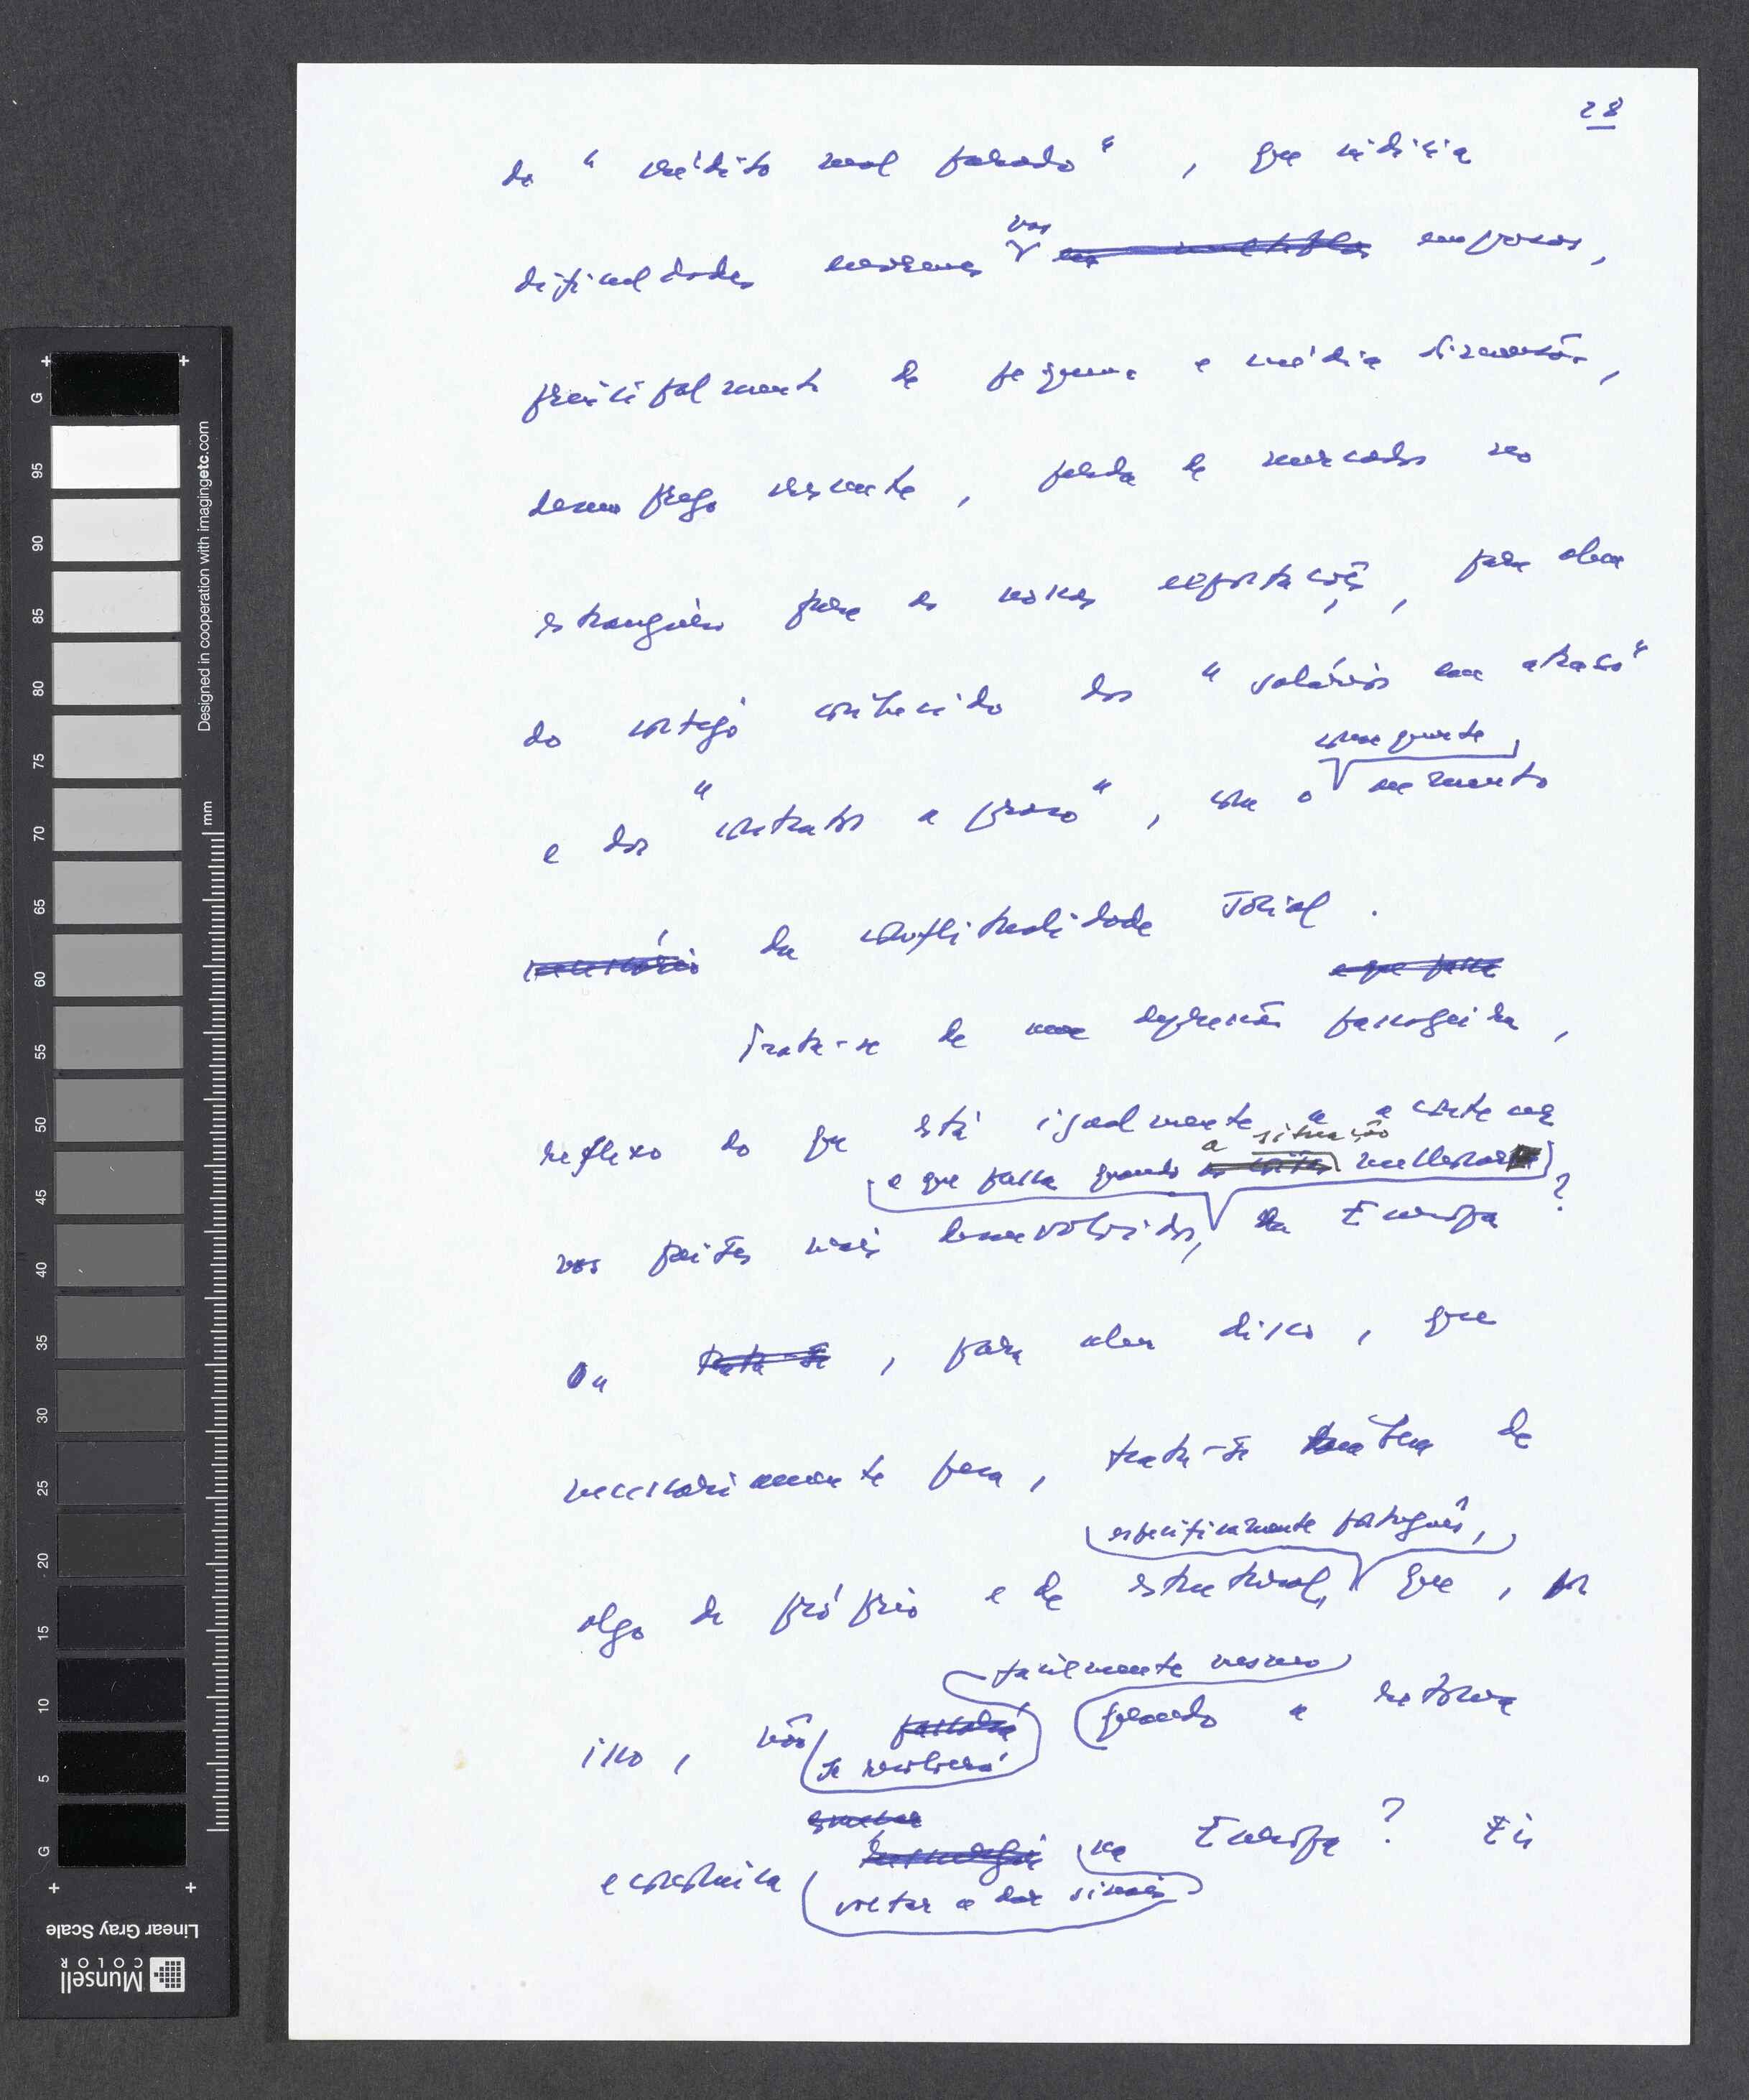 28
do "crédito mal parado", que indicia
dificuldades enormes nas empresas,
principalmente de pequena e média dimensão,
desemprego crescente, perda de mercados no
estrangeiro para as nossas exportações, para além
do cortejo conhecido dos "salários em atraso"
e dos "contratos a prazo", com o consequente aumento
da conflitualidade social.
e que passa
Trata-se de uma depressão passageira,
reflexo do que está igualmente a acontecer
a situação
e que passa quando melhorar
nos países mais desenvolvidos, da Europa?
Ou trata-se, para além disso, que
necessariamente passa, trata-se também de
especificamente português,
algo de próprio e de estrutural, que, por
facilmente mesmo
isso, não quando a retoma
se resolverá
económica na Europa? Eis
voltar a dar sinais
Designed in cooperation with imagingetc.com
mm
G 95 90 85 80 75 70 65 60 55 50 45 40 35 30 25 20 15 10 5 G
Linear Gray Scale
Munsell
COLOR